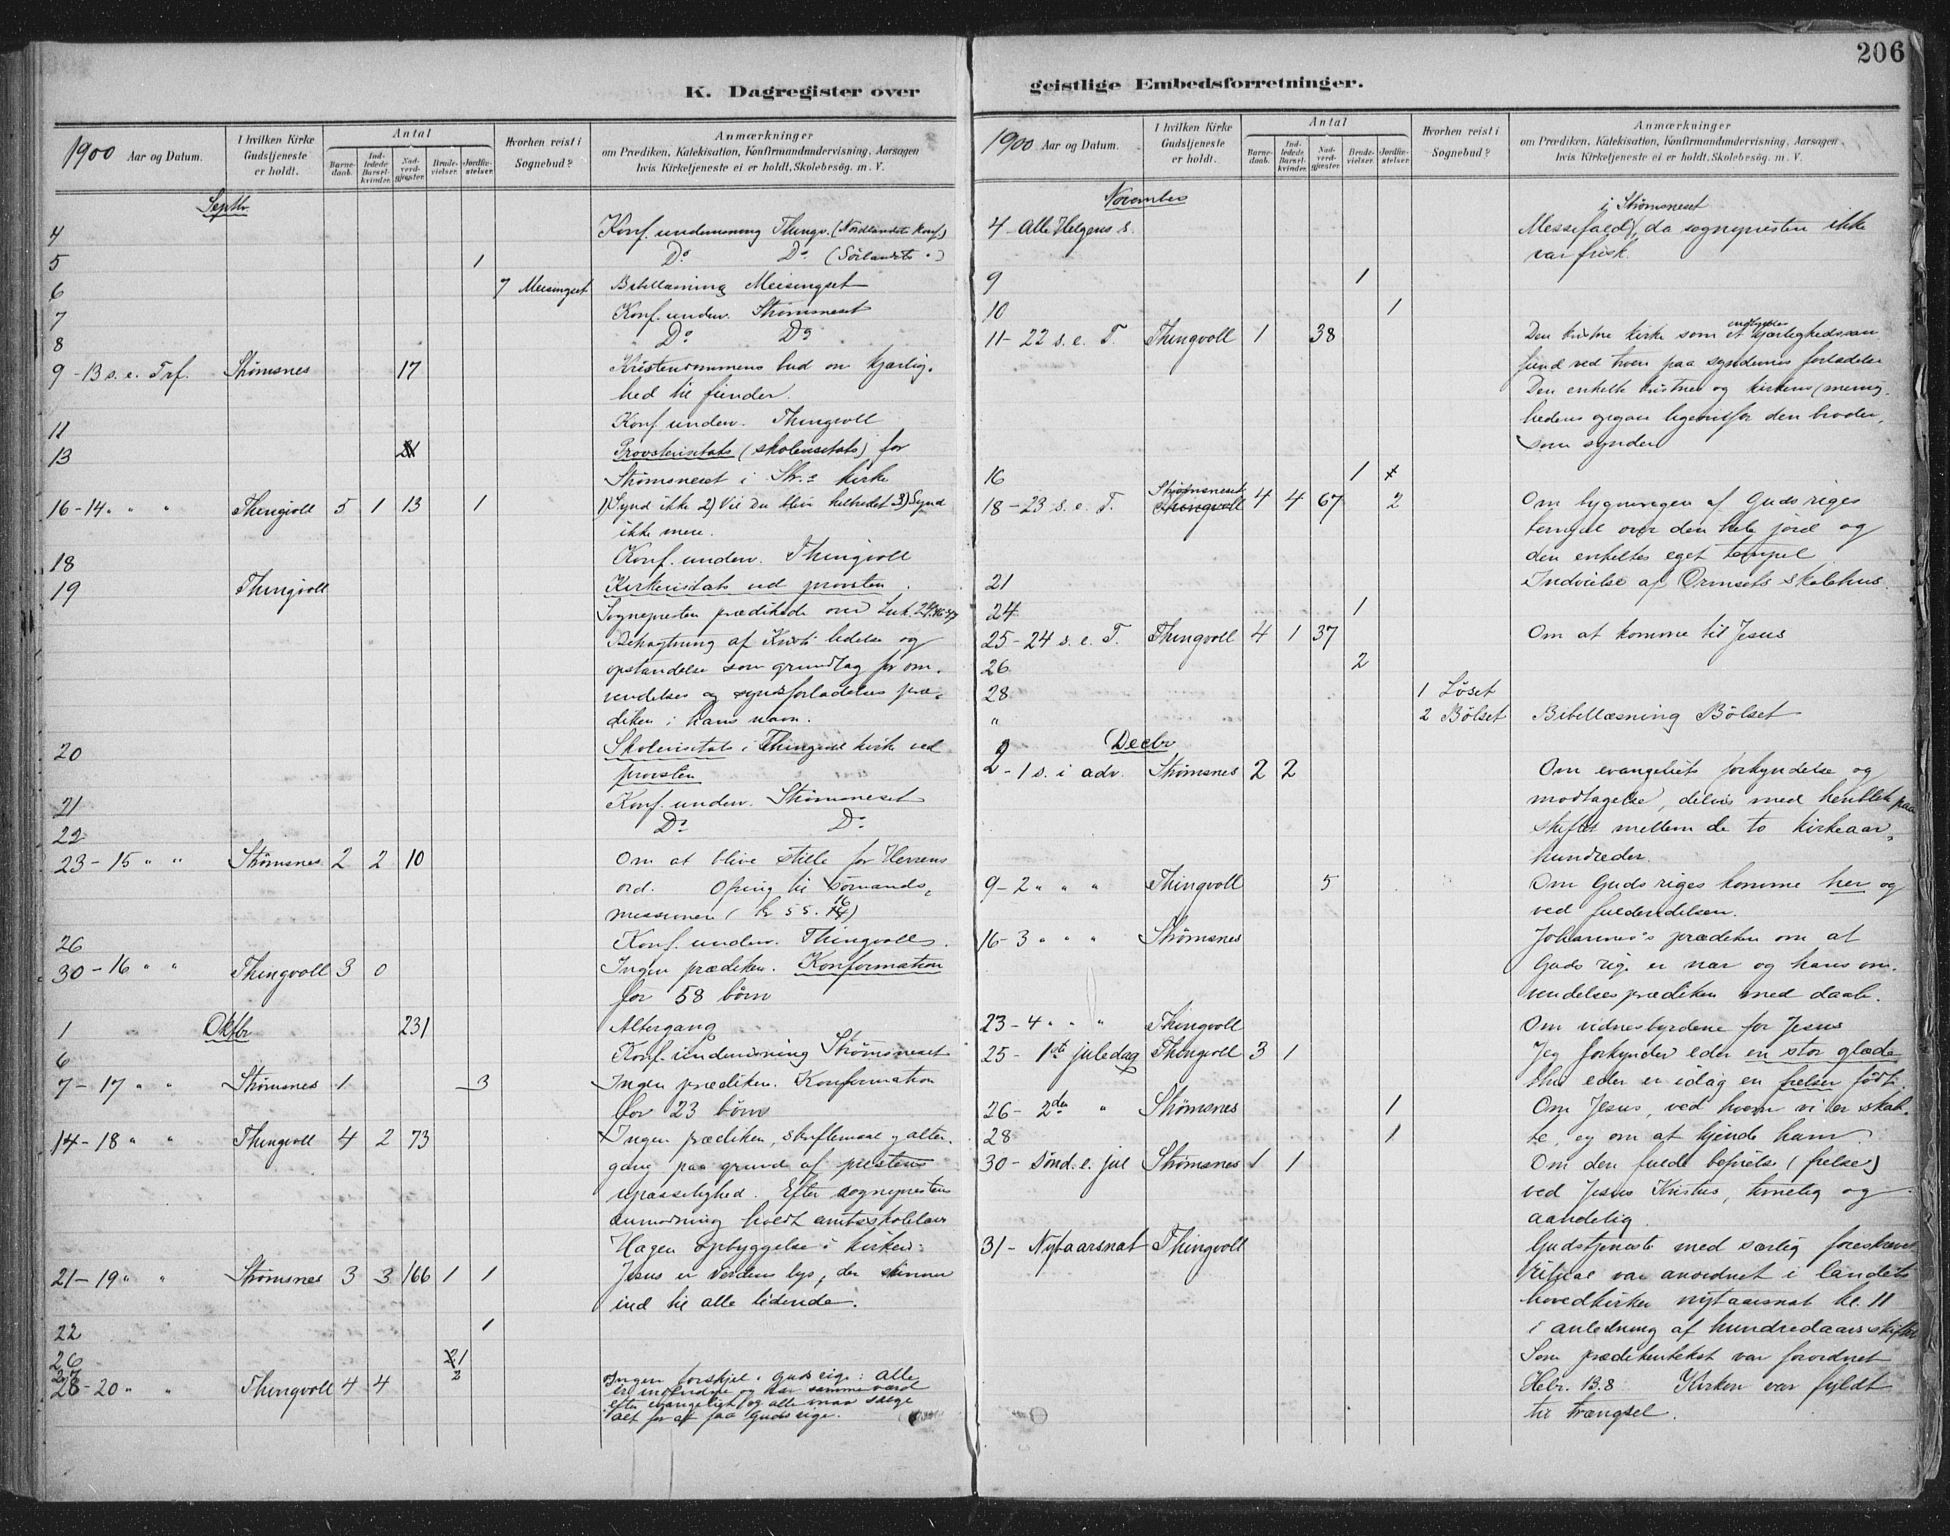 206
K. Dagregister over
1900 Aar og Datum.
I hvilken Kirke Gudstjeneste er holdt.
Antal
Barne-daab. Ind-ledede Barsel-kvinder. Nad-verd-gjester. Brude-vielser. Jordfæ-stelser.
Hvorhen reist i Sognebud?
Anmærkninger
om Prædiken, Katekisation, Konfirmandundervisning, Aarsagen
hvis Kirketjeneste ei er holdt, Skolebesög. m. V.
Septbr
4 Konf. undervisning Thingv. (Nordlandets Konf.)
5 1 Do Do (Sørlandets ")
6 7 Meisingset. Bibellæsning Meisingset
7 Konf. underv. Strømsneset
8 Do Do
9 - 13 s. e. Trf. Strømsnes 17 Kristendommens bud om kjærlig-
hed til fiender.
11 Konf. underv. Thingvoll
13 Provstevisitats (skolevisitats) for
Strømsneset i Str.s kirke
16 - 14 " " Thingvoll 5 1 13 1 1) Synd ikke 2) Vil Du blive helbredet 3) Synd
ikke mere.
18 Konf. underv. Thingvoll
19 Thingvoll Kirkevisitats ved provsten.
Sognepresten prædikede over Luk. 24,46-47
Betragtning af Kristi lidelse og
opstandelse som grundlag for om-
vendelses og syndsforladelses præ-
diken i hans navn.
20 Skolevisitats i Thingvoll kirke ved
provsten
21 Konf. underv. Strømsneset
22 Do Do
23 - 15 " " Strømsnes 2 2 10 Om at blive stille for Herrens
ord. Ofring til sømands-
missionen (kr 55.16)
26 Konf. underv. Thingvoll.
30 - 16 " " Thingvoll 3 0 Ingen prædiken. Konformation
for 58 børn
Oktbr
1 231 Altergang
6 Konf. undervisning Strømsneset
7 - 17 " " Strømsnes 1 3 Ingen prædiken. Konformation
for 23 børn
14 - 18 " " Thingvoll 4 2 73 Ingen prædiken, skriftemaal og alter-
gang paa grund af prestens
upasselighed. Efter sogneprestens
anmodning holdt amtsskolelærer
Hagen opbyggelse i kirken:
21 - 19 " " Strømsnes 3 3 166 1 1 Jesus er verdens lys, der skinner
ind til alle lidende.
22 1
26 1
28 - 20 " " Thingvoll 4 4 2 Ingen forskjel i Guds rige: alle
er indbudne og har samme værd
efter evangeliet og alle maa sælge
alt for at faa Guds rige.
geistlige Embedsforretninger.
1900 Aar og Datum.
I hvilken Kirke Gudstjeneste er holdt.
Antal
Barne-daab. Ind-ledede Barsel-kvinder. Nad-verd-gjester. Brude-vielser. Jordfæ-stelser.
Hvorhen reist i Sognebud?
Anmærkninger
om Prædiken, Katekisation, Konfirmandundervisning, Aarsagen
hvis Kirketjeneste ei er holdt, Skolebesög. m. V.
November
i Strømsneset
4 - Alle Helgens s. Messefald, da sognepresten ikke
var frisk.
9 1
10 1
11 - 22 s. e. T. Thingvoll 1 38 Den kristne kirke som et kjærlighedssam
fund ved troen paa syndernes forladelse
Den enkelte kristnes og kirkens (menig-
hedens opgave ligeoverfor den broder,
som synder
16 1
18 - 23 s. e. T. Strømsneset Thingvoll 4 4 67 2 Om bygningen af Guds riges
tempel over den hele jord og
den enkeltes eget tempel
21 Indvielse af Ormsets skolehus.
24 1
25 - 24 s. e. T. Thingvoll 4 1 37 Om at komme til Jesus
26 2
28 1 Løset
" 2 Bölset Bibellæsning Bölset
Decbr
2 - 1 s. i adv. Strømsnes 2 2 Om evangeliets forkyndelse og
modtagelse, delvis med henblik paa
skiftet mellem de to kirkeaar-
hundreder.
9 - 2 " " " Thingvoll 5 Om Guds riges komme her og
ved fuldendelsen.
16 - 3 " " " Strømsnes Johannes's prædiken om at
Guds rige er nær og hans om-
vendelsesprædiken med daab.
23 - 4 " " " Thingvoll Om vidnesbyrdene for Jesus
25 - 1ste juledag Thingvoll 3 1 Jeg forkynder eder en stor glæde
thi eder er idag en frelser født.
26 - 2den " Strømsnes 1 Om Jesus, ved hvem vi er skab-
28 1 te, og om at kjende ham.
30 - Sønd. e. jul Strømsnes 1 1 Om den fulde befrielse (frelse)
ved Jesus Kristus, timelig og
aandelig.
31 - Nytaarsnat Thingvoll Gudstjeneste med særlig foreskrevet
ritual var anordnet i landets
hovedkirker nytaarsnat kl. 11
i anledning af hundredaarsskiftet
Som prædikentekst var forordnet
Hebr. 13.8 Kirken var fyldt
til trængsel.